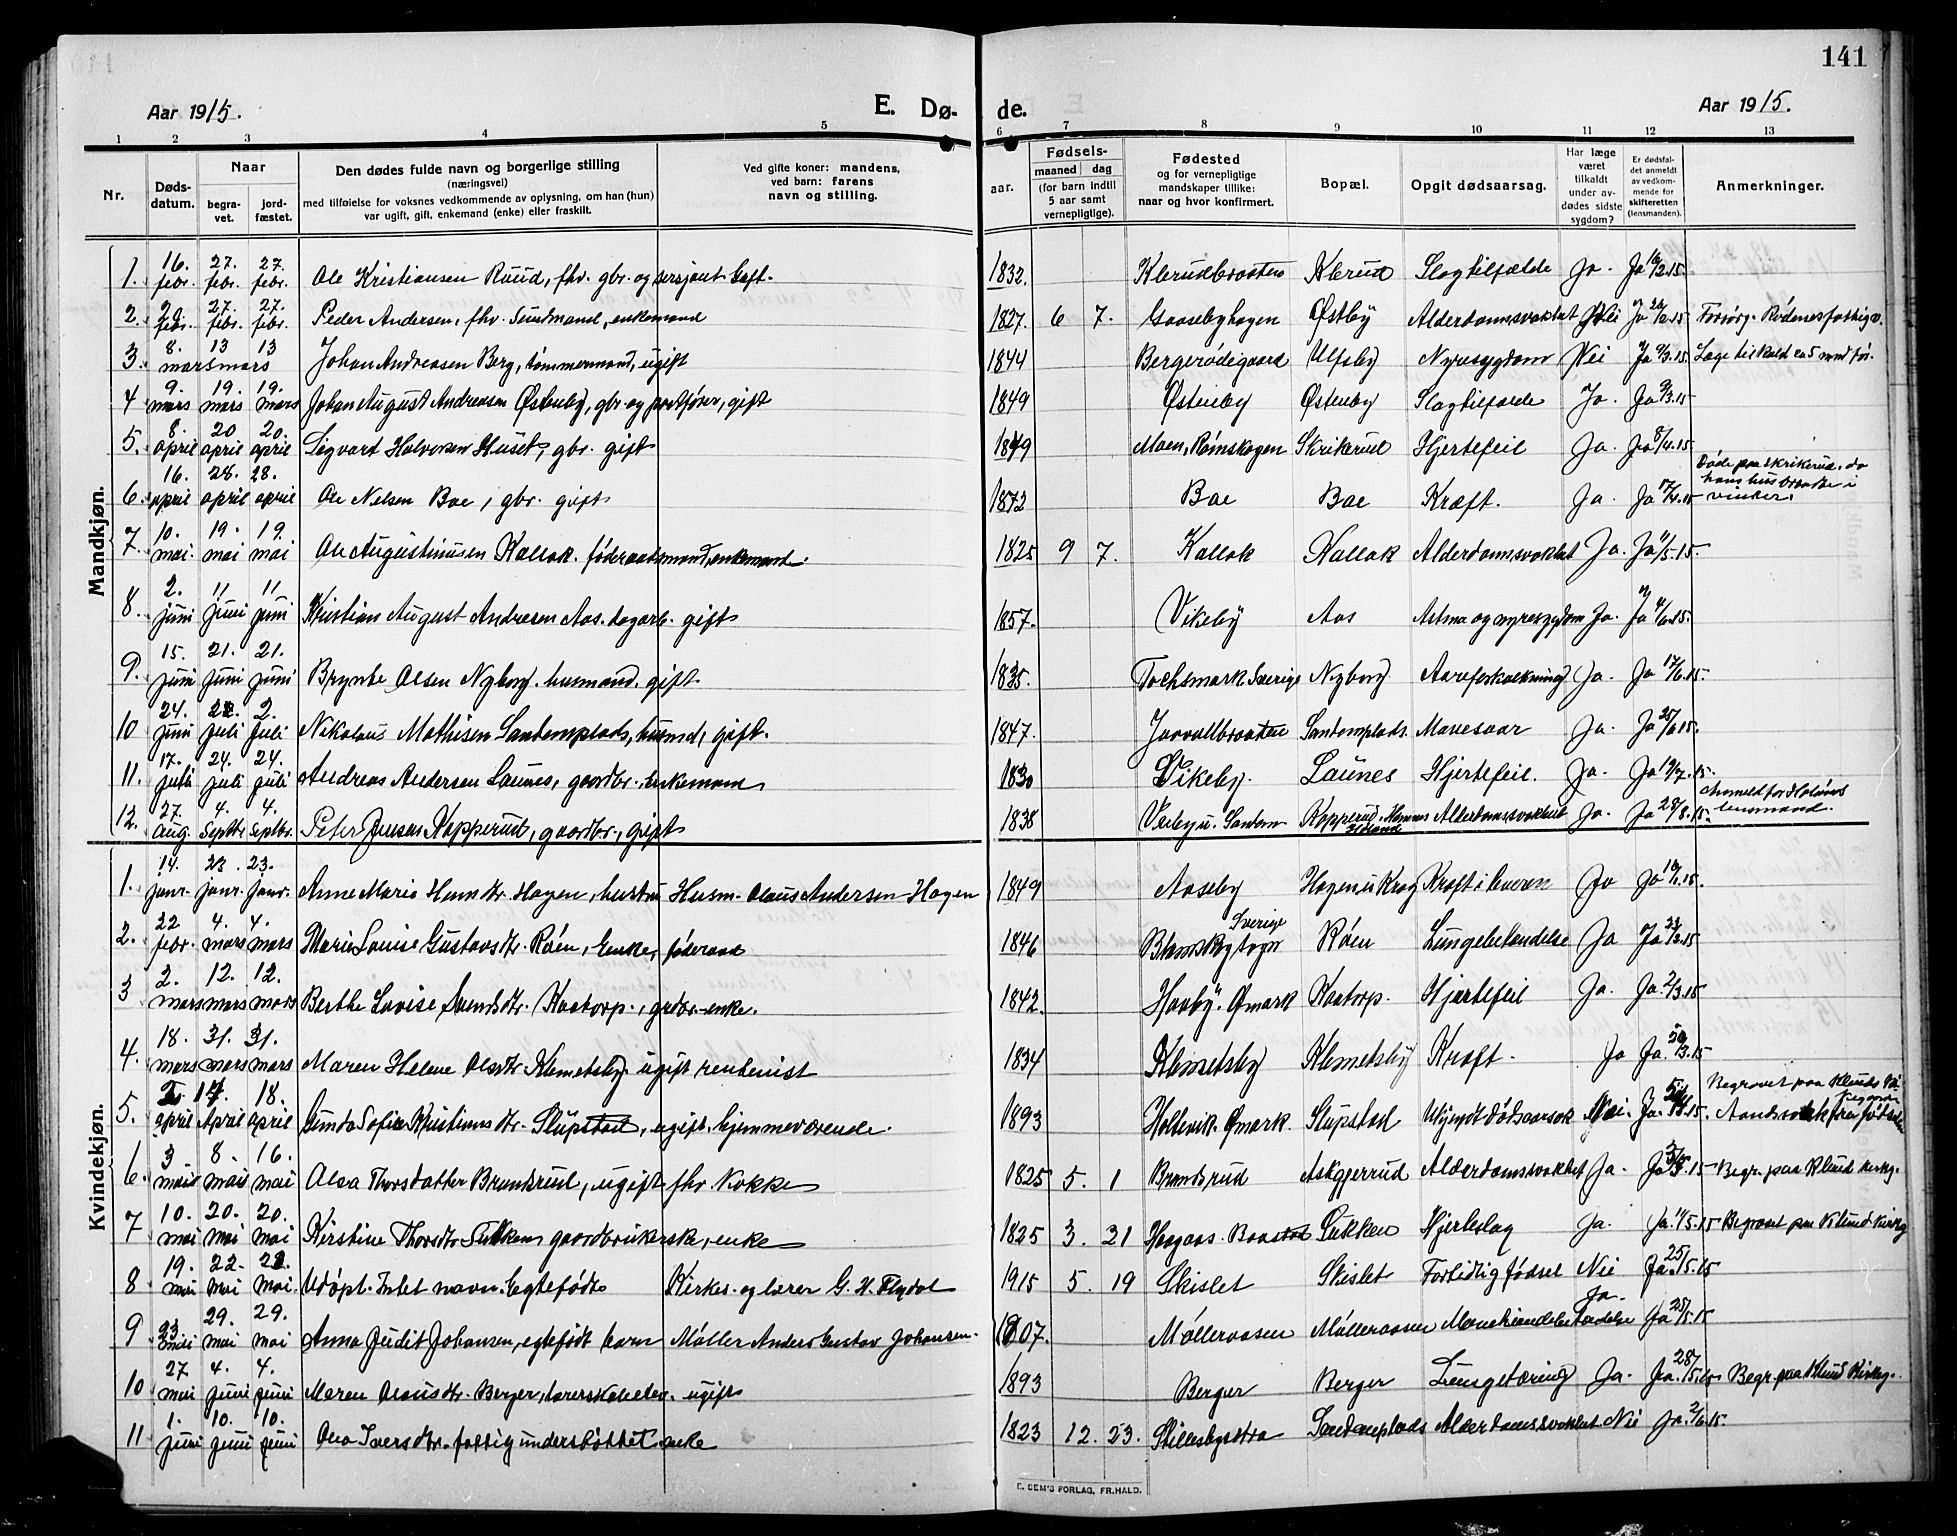 141
Aar 1915.
E. Dø- de.
Aar 1915.
1 2 3 4 5 6 7 8 9 10 11 12 13
Nr. Døds-datum. Naar begra-vet. jord-fæstet. Den dødes fulde navn og borgerlige stilling (næringsvei) med tilføielse for voksnes vedkommende av oplysning, om han (hun) var ugift, gift, enkemand (enke) eller fraskilt. Ved gifte koner: mandens, ved barn: farens navn og stilling. aar. Fødsels- maaned dag (for barn indtil 5 aar samt vernepligtige). Fødested og for vernepligtige mandskaper tillike: naar og hvor konfirmert. Bopæl. Opgit dødsaarsag. Har læge været tilkaldt under av-dødes sidste sygdom? Er dødsfal-det anmeldt av vedkom-mende for skifteretten (lensmanden). Anmerkninger.
Mandkjøn.
1. 16. febr. 27. febr. 27. febr. Ole Kristiansen Ruud, fhv. gbr. og sersjant. Gift. 1832. Klerudbraaten Klerud Slagtilfælde Ja. Ja
2. febr. 27. febr. 27. febr. Peder Andersen, fhv. Sundmand, enkemand 1827. 6 7. Gaasebyhagen Østby Alderdomssvakhet Nei Ja Forsørg. Rødenes fattigv.
3. 8. mars 13 mars 13 Johan Andreasen Berg, tømmermand, ugift 1844 Bergerødegaard Ulfsby Nyresygdom Nei Ja 9/3.15 Læge tilkald ca 5 mnd før.
4 9. mars 19. mars 19. mars Johan August Andresen Østenby, gbr. og postfører, gift 1849 Østenby Østenby Slagtilfælde Ja. Ja 9/3.15
5. 8. april 20 april 20. april Sigvart Halvorsen Huset, gbr. gift 1849 Moen, Rømskogen Skrikerud Hjertefeil Ja. Ja 8/4.15 Døde paa Skrikerud, da hans hus brændte i vinter.
6. 16. april 28. april 28. april Ole Nelsen Boe, gbr. gift 1872 Boe Boe Kræft. Ja. Ja 17/4.15
7. 10. mai. 19. mai 19. mai Ole Augustinusen Kallak. føderaadsmand, enkemand. 1825 9 7. Kallak Kallak Alderdomssvakhet Ja. Ja 11/5.15.
8. 2. juni 11 juni 11 juni Kristian August Andresen Aas. dagarb. gift 1857. Vikeby Aas Astma og nyresygdom Ja. Ja 4/6.15.
9. 15. juni 21. juni 21. juni Brynte Olsen Nyborg. husmand. gift 1835. Tochsmark Sverige Nyborg Aareforkalkning Ja. Ja 17/6.15.
10 24. juni 2. juli 2. juli Nikolaus Mathisen Sandemplads, husmd, gift. 1847. Jaavallbraaten Sandemplads. Mavesaar Ja. Ja 25/6.15.
11. 17. juli 24. juli 24. juli Andreas Andersen Launes, gaardbr. Enkemann 1830 Vikeby. Launes Hjertefeil. Ja. Ja 19/7.15.
12. 27. Aug. 4. Septbr. 4. Septbr. Peter Jensen Kopperud, gaardbr., gift 1838 Visby u. Sandem Kopperud. Hemnes Høland Alderdomssvakhet Ja. Ja 28/8.15. Anmeldt for Hølands lensmand.
Kvindekjøn.
1. 14. janr. 23. janr. 23. janr. Anne Marie Hansdtr. Hagen, hustru Husm. Olaus Andersen Hagen 1849 Aaseby Hagen u Krog Kræft i leveren Ja Ja
2. 22 febr. 4. mars 4. mars Marie Louise Gustavsdtr. Røen, Enke, føderaad 1846 Blomskog sogn Sverige Røen Lungebetændelse Ja Ja
3 2. mars 12. mars 12. mars Berthe Lovise Svendsdtr. Kaatorp, grdbr-enke. 1842. Haaby. Ømark Kaatorp. Hjertefeil Ja. Ja. 2/3.15
4. 18. mars 31. mars 31. mars Maren Helene Olsdtr. Klemetsby ugift rentenist 1834 Klemetsby Klemetsby Kræft. Ja Ja. 20/3.15
5. april 17. April 18. april Gunda Sofie Kristiansdtr. Slupstad, ugift. hjemmeværende. 1893 Holtevik. Ømark. Slupstad Ukjendt dødsaarsak Nei. Ja. Begravet paa Klunds kirkegaard Aandssvak fra fødselen
6. 3 mai 8. mai 16. mai Olea Thorsdatter Brandsrud, ugift fhv. Kokke 1825 5. 1 Brandsrud Askgjerrud Alderdomssvakhet Ja. Ja 3/5.15 Begr. paa Klund kirkeg.
7 10. mai 20. mai 20. mai Kirstine Thorsdtr. Sukken gaardbrukerske, enke 1825 3. 21 Haagaas. Baastad Sukken Hjerteslag Ja. Ja. 11/5.15 Begravet paa Klund kirkeg
8 19. mai 22. mai 22. mai. Udøpt. Intet navn. Egtefødt Kirkes. og lærer G. H. Flydal 1915 5. 19 Skislet Skislet Fortidlig fødsel Nei Ja. 25/5.15
9 23 mai 29. mai 29. mai Anna Judit Johansen, egtefødt barn Møller Anders Gustav Johansen. 1907. Mølleraasen Mølleraasen Ja. Ja 25/5.15
10 27 mai 4. juni 4. juni Maren Olausdtr. Berger, lærerskoleelev. ugift 1893 Berger Berger Lungetæring Ja. Ja. 28/5.15 Begr. paa Klund Kirkeg.
11 1. juni 10. juni 10. juni Olea Iversdtr. fattigunderstøttet enke 1823 12. 23. Stillesbystra Sandemplads Alderdomssvakhet Nei Ja. 2/6.15.
E. SEM'S FORLAG, FR.HALD.